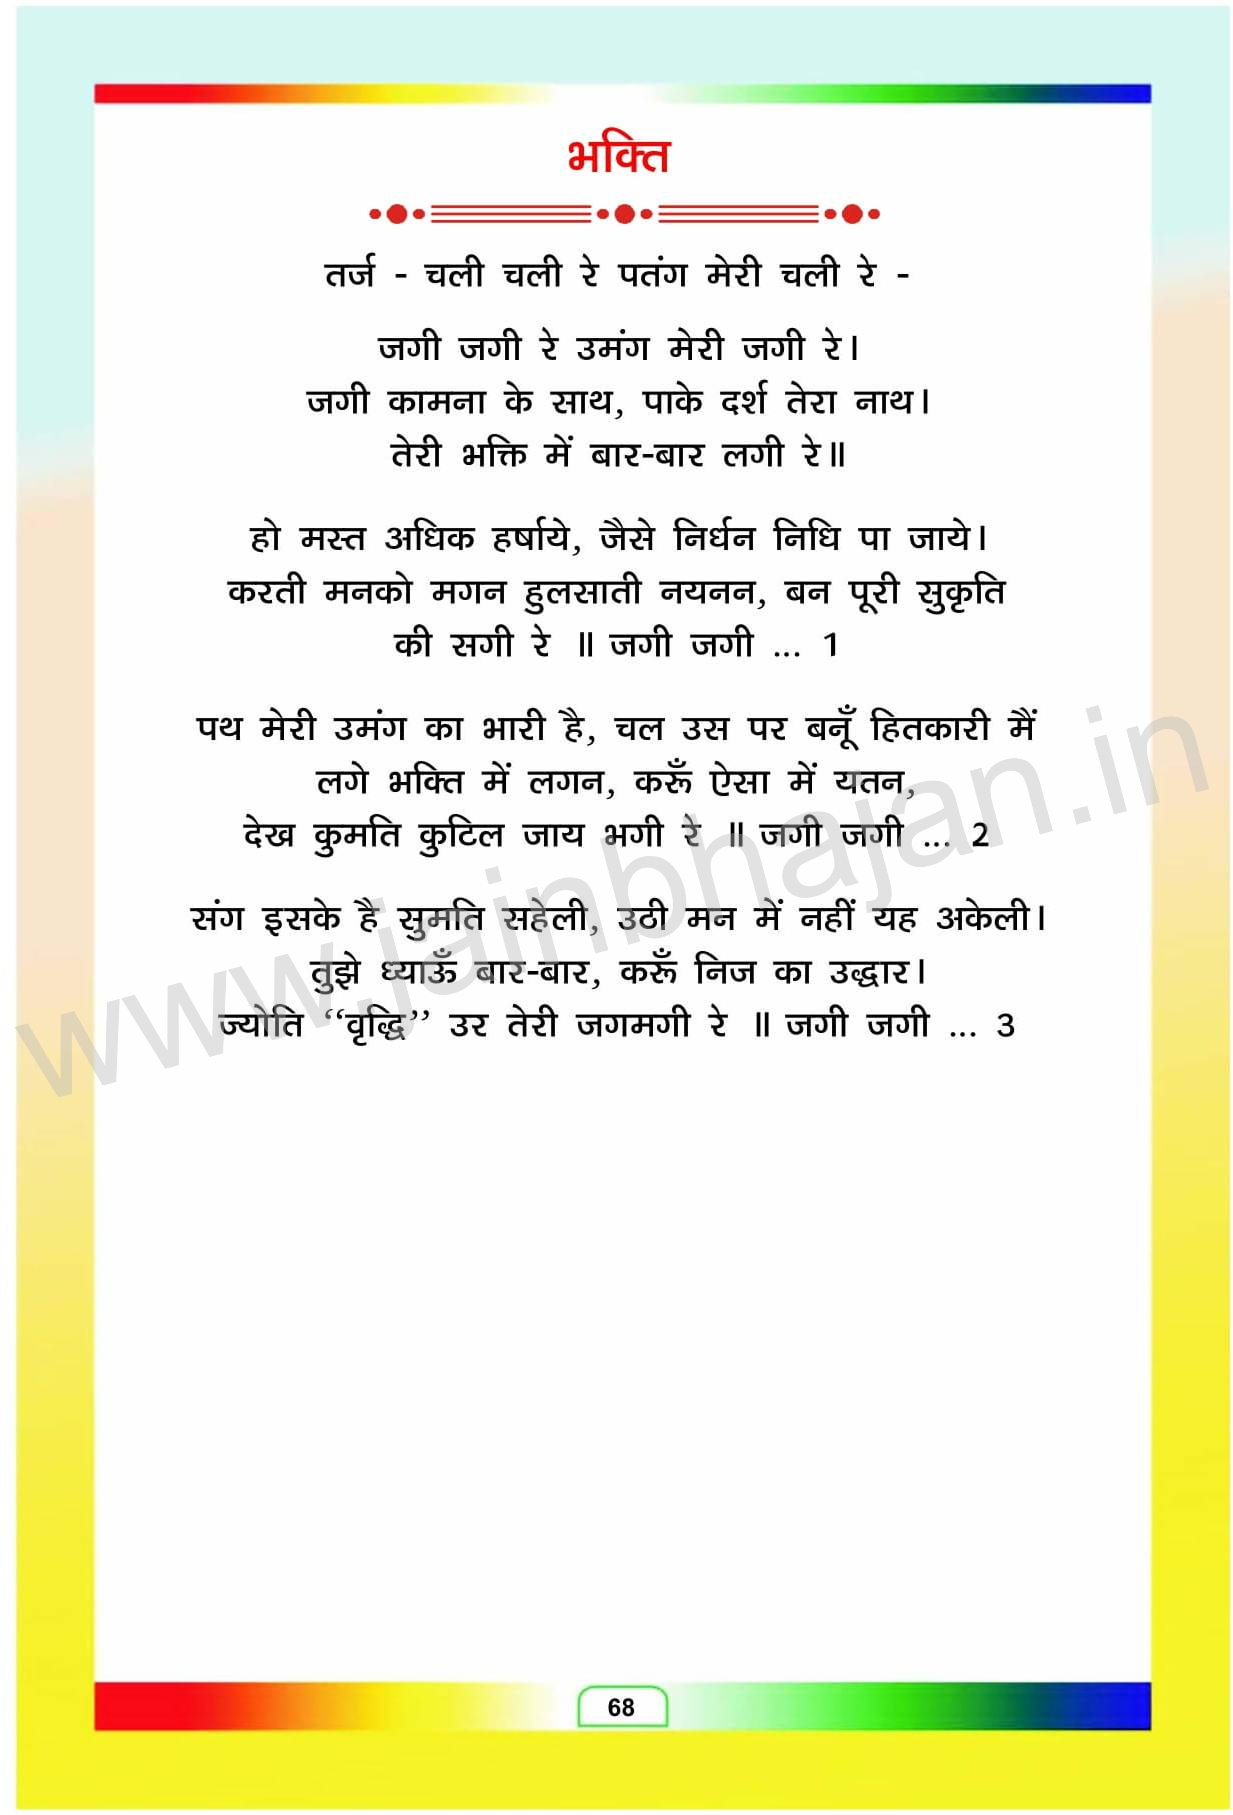 भक्ति
तर्ज - चली चली रे पतंग मेरी चली रे -
जगी जगी रे उमंग मेरी जगी रे।
जगी कामना के साथ, पाके दर्श तेरा नाथ।
तेरी भक्ति में बार-बार लगी रे॥
हो मस्त अधिक हर्षाये, जैसे निर्धन निधि पा जाये।
करती मनको मगन हुलसाती नयनन, बन पूरी सुकृति
की सगी रे ॥ जगी जगी ... 1
पथ मेरी उमंग का भारी है, चल उस पर बनूँ हितकारी मैं
लगे भक्ति में लगन, करूँ ऐसा में यतन,
देख कुमति कुटिल जाय भगी रे ॥ जगी जगी ... 2
संग इसके है सुमति सहेली, उठी मन में नहीं यह अकेली।
तुझे ध्याऊँ बार-बार, करूँ निज का उद्धार।
ज्योति ‘‘वृद्धि’’ उर तेरी जगमगी रे ॥ जगी जगी ... 3
www.jainbhajan.in
68